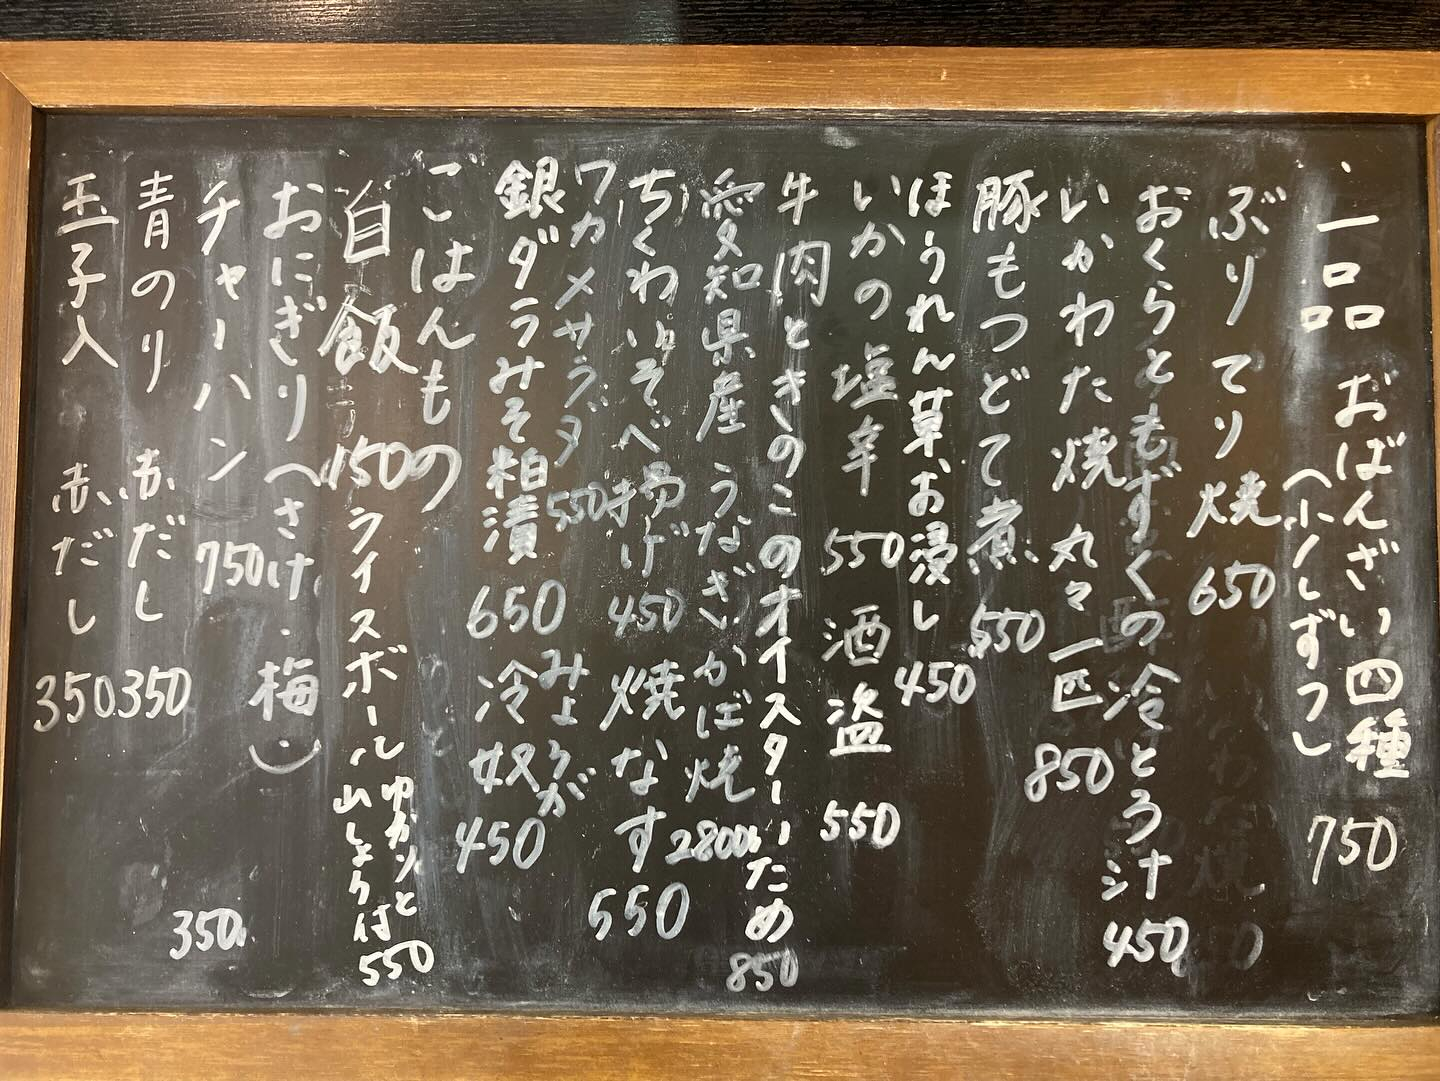 ・一品 おばんざい四種 750
(少しずつ)
ぶり てり焼 650
おくらともずくの冷とろ汁 450
いかわた焼 丸々一匹 850
豚もつどて煮 550
ほうれん草お浸し 450
いかの塩辛 550 酒盗 550
牛肉ときのこのオイスターいため 850
愛知県産 うなぎ かば焼 2800
ちくわいそべ揚げ 450 焼なす 550
ワカメサラダ 550 みょうが
銀ダラみそ粕漬 650 冷奴 450
ごはんもの
白飯 150 ライスボール ゆかりと
山しょう付 550
おにぎり(さけ・梅) 350
チャーハン 750
青のり 赤だし 350
玉子入 赤だし 350